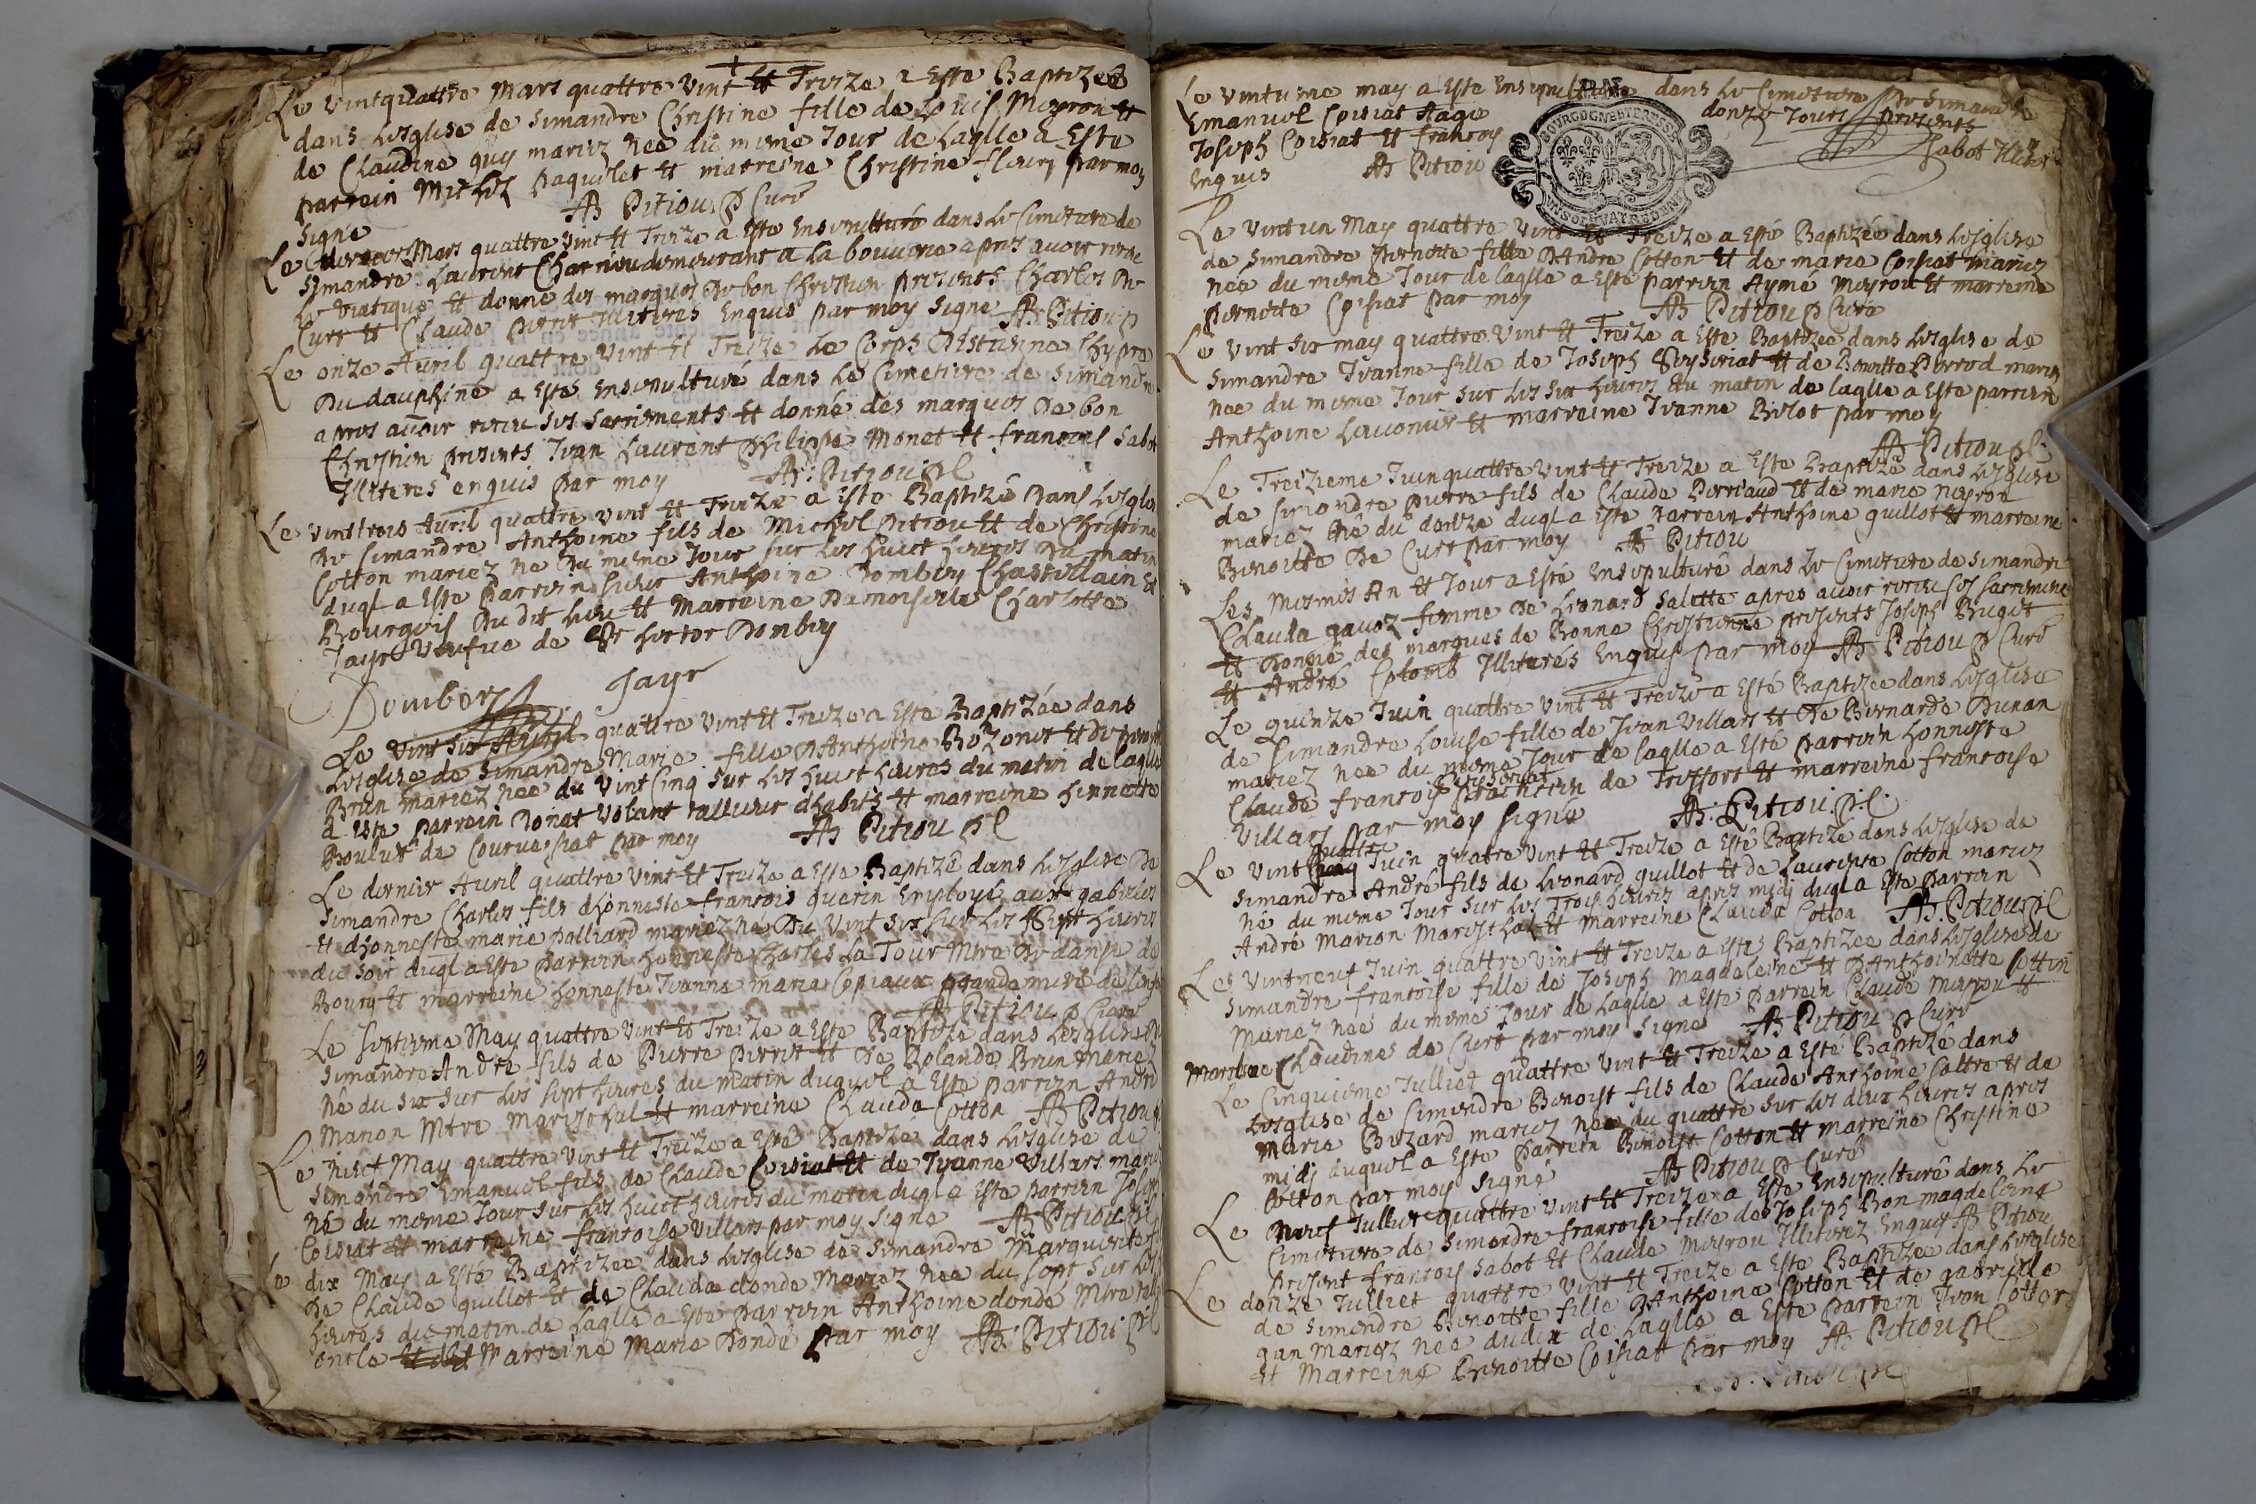 Le vintquattre Mars quattre vint et Treize a Este Baptizée
dans Lesglise de Simandre Christine fille de Louis Moyron et
de Claudine guy mariez née du mesme Jour de Laqlle a Este
parrein Michel paquelet et marreine Christine fleury par moy
signe AB Pitiou P Curé
Le Mars quattre vint et Treize a Este Ensepulturé dans Le Cimetiere de
Simandre Laurent Charriou demeurant a La bouverie apres avoir receu
Le viatique et donné des marques de bon Chrestien presents Charles De
Curt et Claude perret Illiteres Enquis par moy signe AB Pitiou P
Le onze Avril quattre vint et Treize Le Corps
Du dauphiné a Esté Ensepulturé dans Le Cimetiere de Simandre
apres avoir receu ses sacrements et donné des marques de bon
Chrestien presents Jean Laurent philippe Monet et francois Sabot
Illiteres enquis par moy AB: Pitiou P C
Le vinttrois Avril quattre vint et Treize a Este Baptizé dans Lesglise
De Simandre Anthoine fils de Michel Pitiou et de Christine
Cotton mariez né du mesme Jour sur Les huict heures du matin
duql a Este parrein sieur Anthoine Dombey Chastellain et
Bourgeois Du dit Lieu et Marreine Damoiselle Charlotte
Jayr veufue de Sr hector Dombey
Dombey Jayr
Le vint six Avril quattre vint et Treize a Este Baptizée dans
Lesglise de Simandre Marie fille DAnthoine Bozonet et de
Brun mariez née du vint Cinq sur Les huict heures du matin de laqlle
a Este parrein Donat volant tallieur dhabits et marreine
Boulut de Courvessiat par moy AB Pitiou P C
Le dernier Avril quattre vint et Treize a Este Baptizé dans Lesglise De
Simandre Charles fils dhonneste francois guerin Employé aux gabelles
et dhonneste marie palliard mariez né Du vint six sur Les sept heures
du soir duql a Este parrein honneste Charles La Tour Mtre De danse de
Bourg et marreine honneste Jeanne maria Copiaux
AB Pitiou P Curé
Le septiesme May quattre vint et Treize a Este Baptizé dans Lesglise De
Simandre André fils de Pierre perret et De Rolande Brun Mariez
né du six sur Les sept heures du matin duquel a Este parrein André
Marion Mtre Mareschal et marreine Clauda Cotton AB Pitiou
Le huict May quattre vint et Treize a Esté Baptizé dans Lesglise de
Simandre Emanuel fils de Claude Coisiat et de Jeanne Villars mariez
né du mesme Jour sur Les huict heures du matin duql a Este parrein Joseph
Coisiat et marreine francoise Villars par moy signe AB Pitiou
Le dix May a Esté Baptizee dans Lesglise de Simandre Marguerite
De Claude guillot et de Clauda donde Mariez née du sept sur Les
heures du matin de Laqlle a Este parrein Anthoine donde Mtre
oncle Marreine Marie Donde par moy AB: Pitiou P C
Le vintiesme may a Este Ensepulturé dans Le Cimetiere De Simandre
Emanuel Coisiat Aagé donze Jours presents
Joseph Coisiat et francois Sabot Illiteres
Enquis AB Pitiou
BOURGOGNE ET BRESSE
Le vintun May quattre vint et Treize a Esté Baptizée dans Lesglise
de Simandre pernette fille DAndré Cotton et de marie Coisiat mariez
née du mesme Jour de laqlle a Este parrein Aymé Moyrou et marreine
pernette Coisiat par moy AB Pitiou P Curé
Le vint six may quattre vint et Treize a Este Baptizée dans Lesglise de
Simandre Jeanne fille de Joseph et de Benoitte Perrod mariez
née du mesme Jour sur Les six heures du matin de laqlle a Este parrein
Anthoine et marreine Jeanne Bilot par moy
AB Pitiou P C
Le Treizieme Juin quattre vint et Treize a Este Baptizé dans Lesglise
de Simandre pierre fils de Claude Perriaud et de marie neyron
mariez né du douze duql a Este parrein Anthoine guillot et marreine
Benoitte De Curt par moy AB Pitiou
Les Mesmes An et Jour a Esté Ensepulturé dans Le Cimetiere de Simandre
Clauda gavoz femme De Leonard Salette apres avoir receu ses sacrements
et donné des marques de Bonne Chrestienne presents Joseph Bugat
et André Illiterés Enquis par moy AB Pitiou P Curé
Le quinze Juin quattre vint et Treize a Esté Baptizee dans Lesglise
de Simandre Louise fille de Jean Villars et De Bernarde Dunan
mariez née du mesme Jour de laqlle a Esté parrein honneste
Claude francois de Treffort et marreine francoise
Villars par moy signé AB: Pitiou: P: C:
Le vint quattre Juin quatre vint et Treize a Esté Baptizé dans Lesglise de
Simandre André fils de Leonard guillot et de Laurente Cotton mariez
né du mesme Jour sur Les Trois heures apres midj duql a Este parrein
André Marion Mareschal et marreine Clauda Cotton AB: Pitiou P C
Le vintneuf Juin quattre vint et Treize a Esté Baptizee dans Lesglise de
Simandre francoise fille de Joseph Magdeleine et DAnthoinette Cottin
Mariez née du mesme Jour de laqlle a Este parrein Claude Moyrou et
Marreine Claudine de Curt par moy signe AB Pitiou P Curé
Le Cinquiesme Julliet quattre vint et Treize a Esté Baptizé dans
Lesglise de Simandre Benoist fils de Claude Anthoine Coltre et de
Marie Buzard mariez né du quattre sur Les deux heures apres
midj duquel a Este parrein Benoist Cotton et marreine Christine
Cotton par moy signé AB Pitiou P Curé
Le Neuf Julliet quattre vint et Treize a Este Ensepulturé dans Le
Cimetiere de Simandre francoise fille de Joseph Bon magdeleine
present francois Sabot et Claude Moyrou Illiterez Enquis AB Pitiou
Le donze Julliet quattre vint et Treize a Este Baptizée dans Lesglise
de Simandre Benoitte fille DAnthoine Cotton et de gabrielle
gan Mariez née du dix de laqlle a Este parrein Jean Cotton
et Marreine Benoitte Coisiat par moy AB Pitiou P C